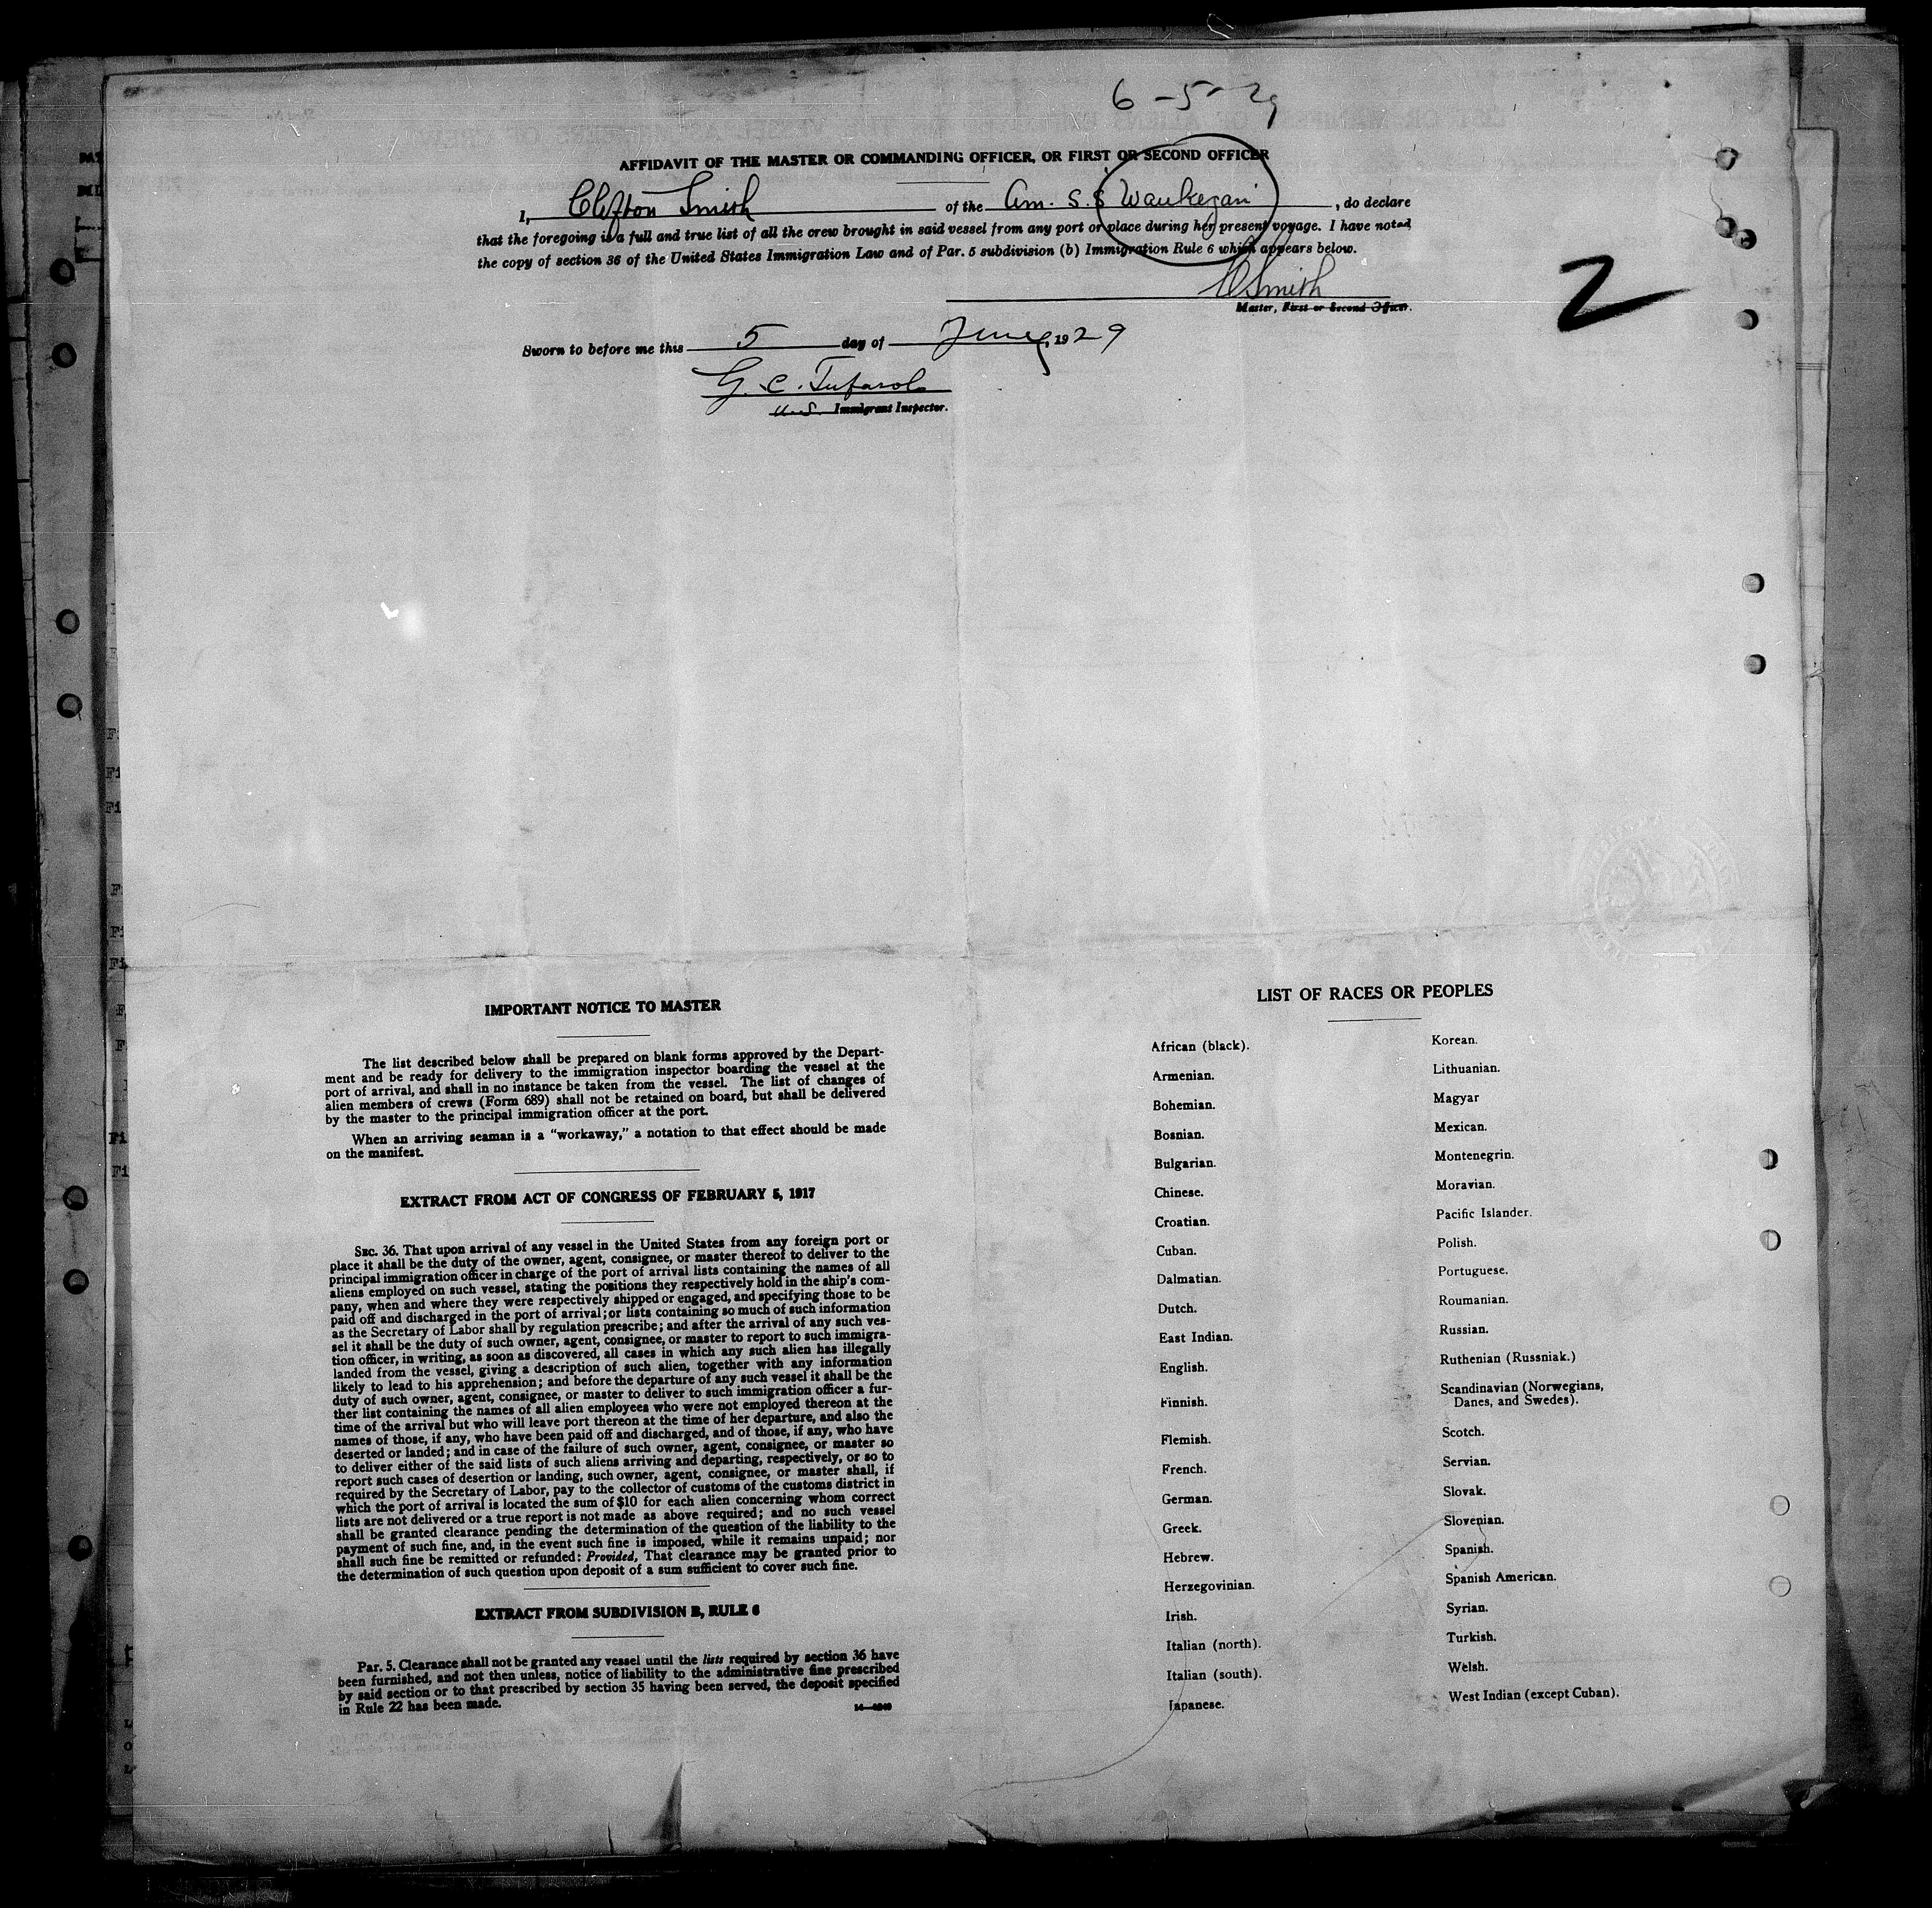 6-5-29
AFFIDAVIT OF THE MASTER OR COMMANDING OFFICER, OR FIRST OR SECOND OFFICER
I, Clifton Smith of the Am. S.S Waukegan, do declare
that the foregoing is a full and true list of all the crew brought in said vessel from any port or place during her present voyage. I have noted
the copy of section 36 of the United States Immigration Law and of Par. 5 subdivision (b) Immigration Rule 6 which appears below.
C Smith
Master, First or Second Officer.
2
Sworn to before me this 5 day of June, 1929
G. C.
U.S. Immigrant Inspector.
IMPORTANT NOTICE TO MASTER
The list described below shall be prepared on blank forms approved by the Depart-
ment and be ready for delivery to the immigration inspector boarding the vessel at the
port of arrival, and shall in no instance be taken from the vessel. The list of changes of
alien members of crews (Form 689) shall not be retained on board, but shall be delivered
by the master to the principal immigration officer at the port.
When an arriving seaman is a "workaway," a notation to that effect should be made
on the manifest.
EXTRACT FROM ACT OF CONGRESS OF FEBRUARY 5, 1917
SEC. 36. That upon arrival of any vessel in the United States from any foreign port or
place it shall be the duty of the owner, agent, consignee, or master thereof to deliver to the
principal immigration officer in charge of the port of arrival lists containing the names of all
aliens employed on such vessel, stating the positions they respectively hold in the ship's com-
pany, when and where they were respectively shipped or engaged, and specifying those to be
paid off and discharged in the port of arrival; or lists containing so much of such information
as the Secretary of Labor shall by regulation prescribe; and after the arrival of any such ves-
sel it shall be the duty of such owner, agent, consignee, or master to report to such immigra-
tion officer, in writing, as soon as discovered, all cases in which any such alien has illegally
landed from the vessel, giving a description of such alien, together with any information
likely to lead to his apprehension; and before the departure of any such vessel it shall be the
duty of such owner, agent, consignee, or master to deliver to such immigration officer a fur-
ther list containing the names of all alien employees who were not employed thereon at the
time of the arrival but who will leave port thereon at the time of her departure, and also the
names of those, if any, who have been paid off and discharged, and of those, if any, who have
deserted or landed; and in case of the failure of such owner, agent, consignee, or master so
to deliver either of the said lists of such aliens arriving and departing, respectively, or so to
report such cases of desertion or landing, such owner, agent, consignee, or master shall, if
required by the Secretary of Labor, pay to the collector of customs of the customs district in
which the port of arrival is located the sum of $10 for each alien concerning whom correct
lists are not delivered or a true report is not made as above required; and no such vessel
shall be granted clearance pending the determination of the question of the liability to the
payment of such fine, and, in the event such fine is imposed, while it remains unpaid; nor
shall such fine be remitted or refunded: Provided, That clearance may be granted prior to
the determination of such question upon deposit of a sum sufficient to cover such fine.
EXTRACT FROM SUBDIVISION B, RULE 6
Par. 5. Clearance shall not be granted any vessel until the lists required by section 36 have
been furnished, and not then unless, notice of liability to the administrative fine prescribed
by said section or to that prescribed by section 35 having been served, the deposit specified
in Rule 22 has been made.
LIST OF RACES OR PEOPLES
African (black).
Armenian.
Bohemian.
Bosnian.
Bulgarian.
Chinese.
Croatian.
Cuban.
Dalmatian.
Dutch.
East Indian.
English.
Finnish.
Flemish.
French.
German.
Greek.
Hebrew.
Herzegovinian.
Irish.
Italian (north).
Italian (south).
Japanese.
Korean.
Lithuanian.
Magyar
Mexican.
Montenegrin.
Moravian.
Pacific Islander.
Polish.
Portuguese.
Roumanian.
Russian.
Ruthenian (Russniak.)
Scandinavian (Norwegians,
Danes, and Swedes).
Scotch.
Servian.
Slovak.
Slovenian.
Spanish.
Spanish American.
Syrian.
Turkish.
Welsh.
West Indian (except Cuban).